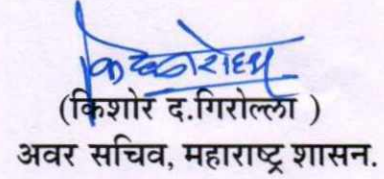 (किशोर द.गिरोल्ला )
अवर सचिव, महाराष्ट्र शासन.